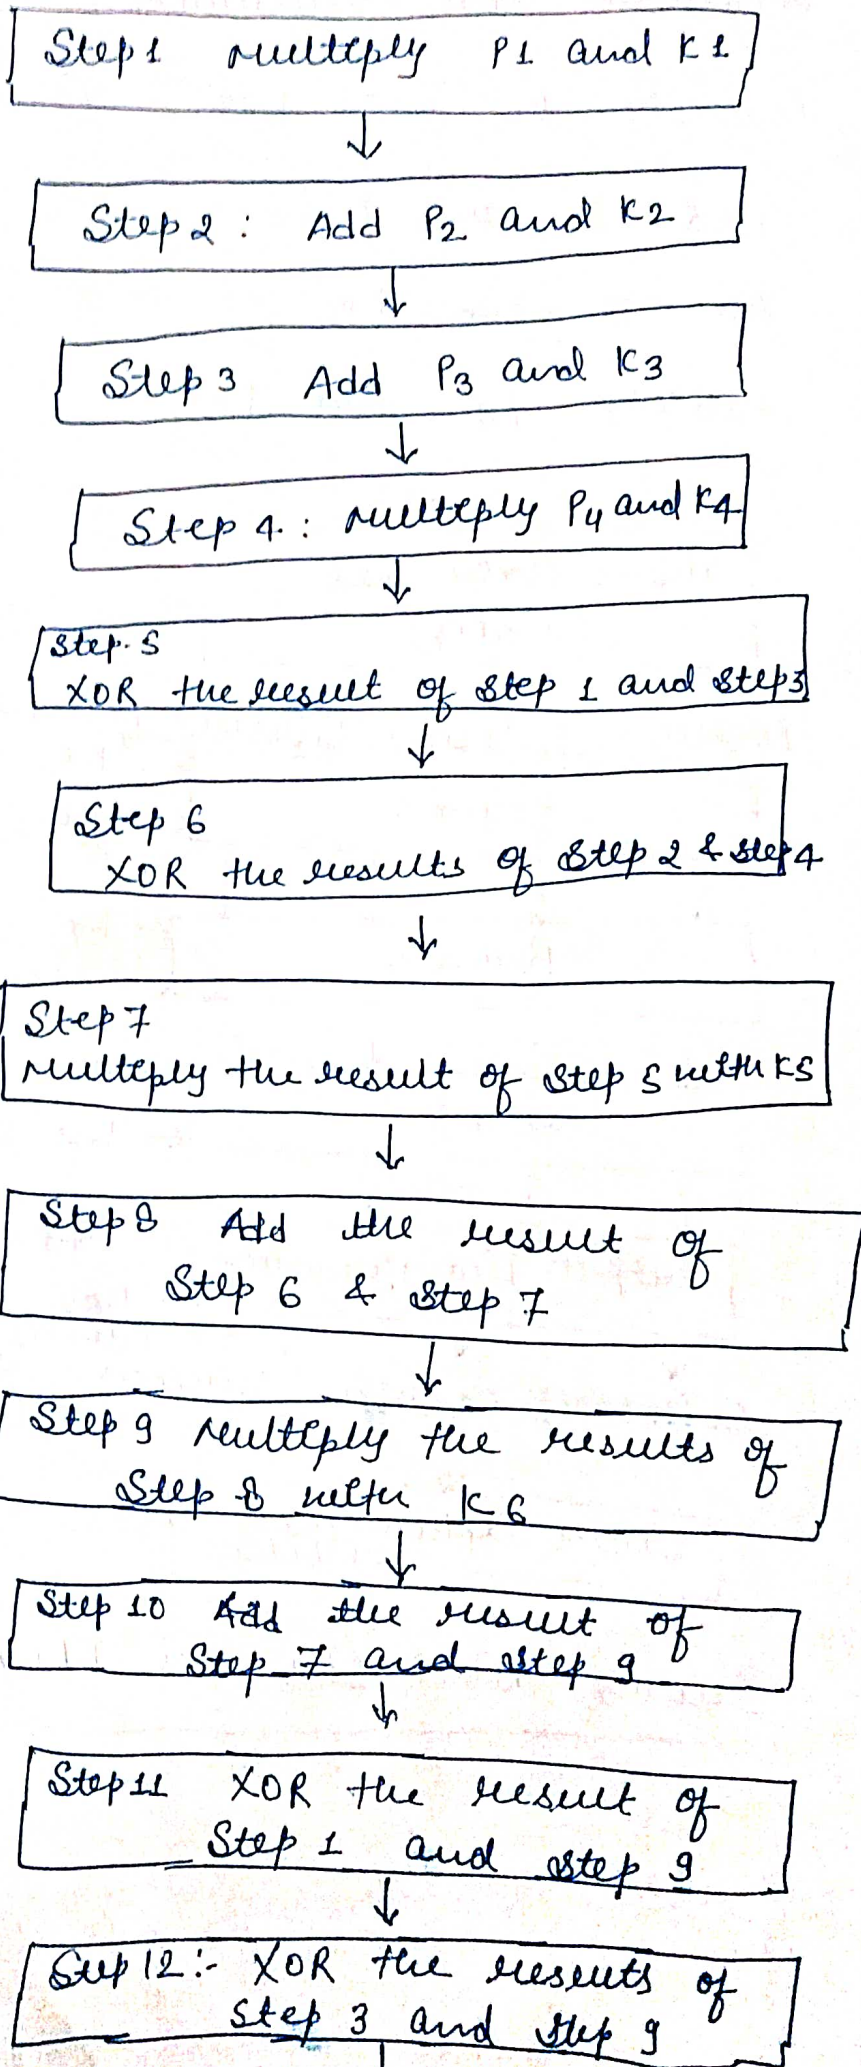 Step 1 Multiply P1 and K1
Step 2 : Add P2 and K2
Step 3 Add P3 and K3
Step 4. : Multiply P4 and K4
Step. 5
XOR the result of step 1 and step 3
Step 6
XOR the results of Step 2 & step 4
Step 7
Multiply the result of step 5 with K5
Step 8 Add the result of
Step 6 & step 7
Step 9 Multiply the results of
Step 8 with K6
Step 10 Add the result of
Step 7 and step 9
Step 11 XOR the result of
Step 1 and step 9
Step 12 :- XOR the results of
Step 3 and step 9